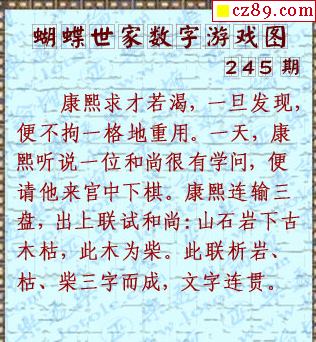 cz89.com
蝴蝶世家数字游戏图
245期
康熙求才若渴，一旦发现，
便不拘一格地重用。一天，康
熙听说一位和尚很有学问，便
请他来官中下棋。康熙连输三
盘，出上联试和尚：山石岩下古
木枯，此木为柴。此联析岩、
枯、柴三字而成，文字连贯。